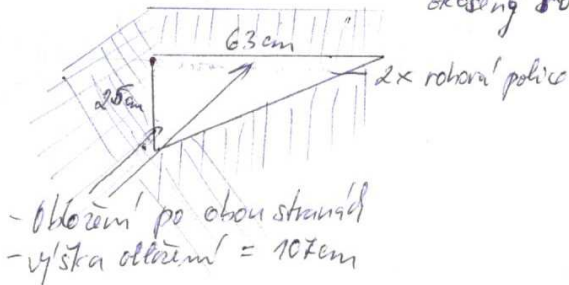 zkosený
63cm
25cm
2x rohová police
- Obložení po obou stranách
- výška obložení = 107cm